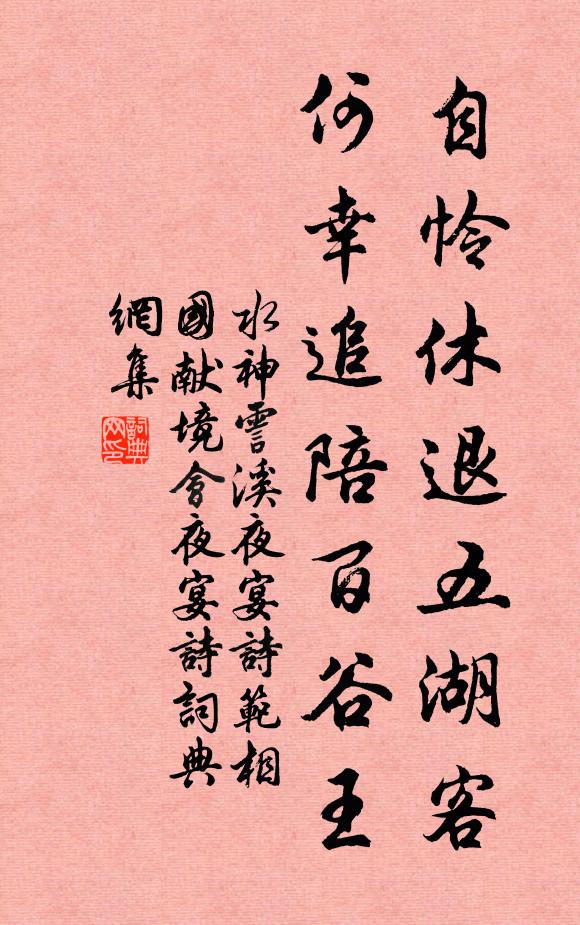 自怜休退五湖客
何幸追陪百谷王
水神霅溪夜宴詩範相
國献境會夜宴詩詞典
網集
詞典
网印